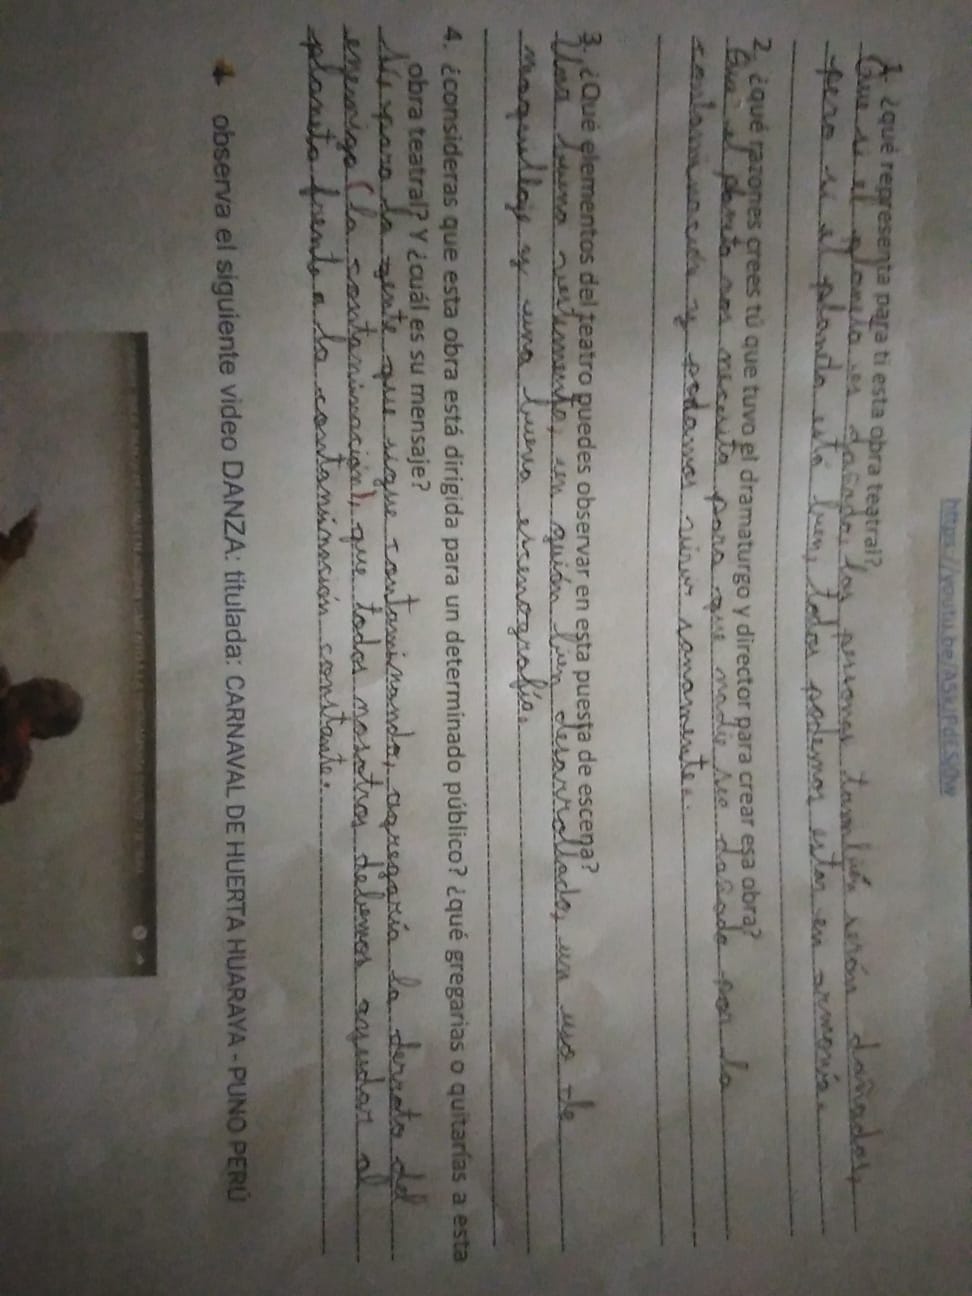 1. ¿qué representa para ti esta obra teatral?
Que si el planeta es dañado, las personas también serán dañadas,
pero si el planeta está bien, todos podemos estar en armonía.
2. ¿qué razones crees tú que tuvo el dramaturgo y director para crear esa obra?
Que el planeta nos necesita para que nadie sea dañado por la
contaminación y podamos vivir sanamente.
3. ¿Qué elementos del teatro puedes observar en esta puesta de escena?
Una buena vestimenta, un guión bien desarrollado, un uso de
maquillaje y una buena escenografía.
4. ¿consideras que esta obra está dirigida para un determinado público? ¿qué gregarias o quitarías a esta
obra teatral? Y ¿cuál es su mensaje?
para la gente que sigue contaminando, agregaría la derrota del
enemigo (la contaminación), que todos nosotros debemos ayudar al
planeta frente a la contaminación constante.
observa el siguiente video DANZA: titulada: CARNAVAL DE HUERTA HUARAYA - PUNO PERÚ